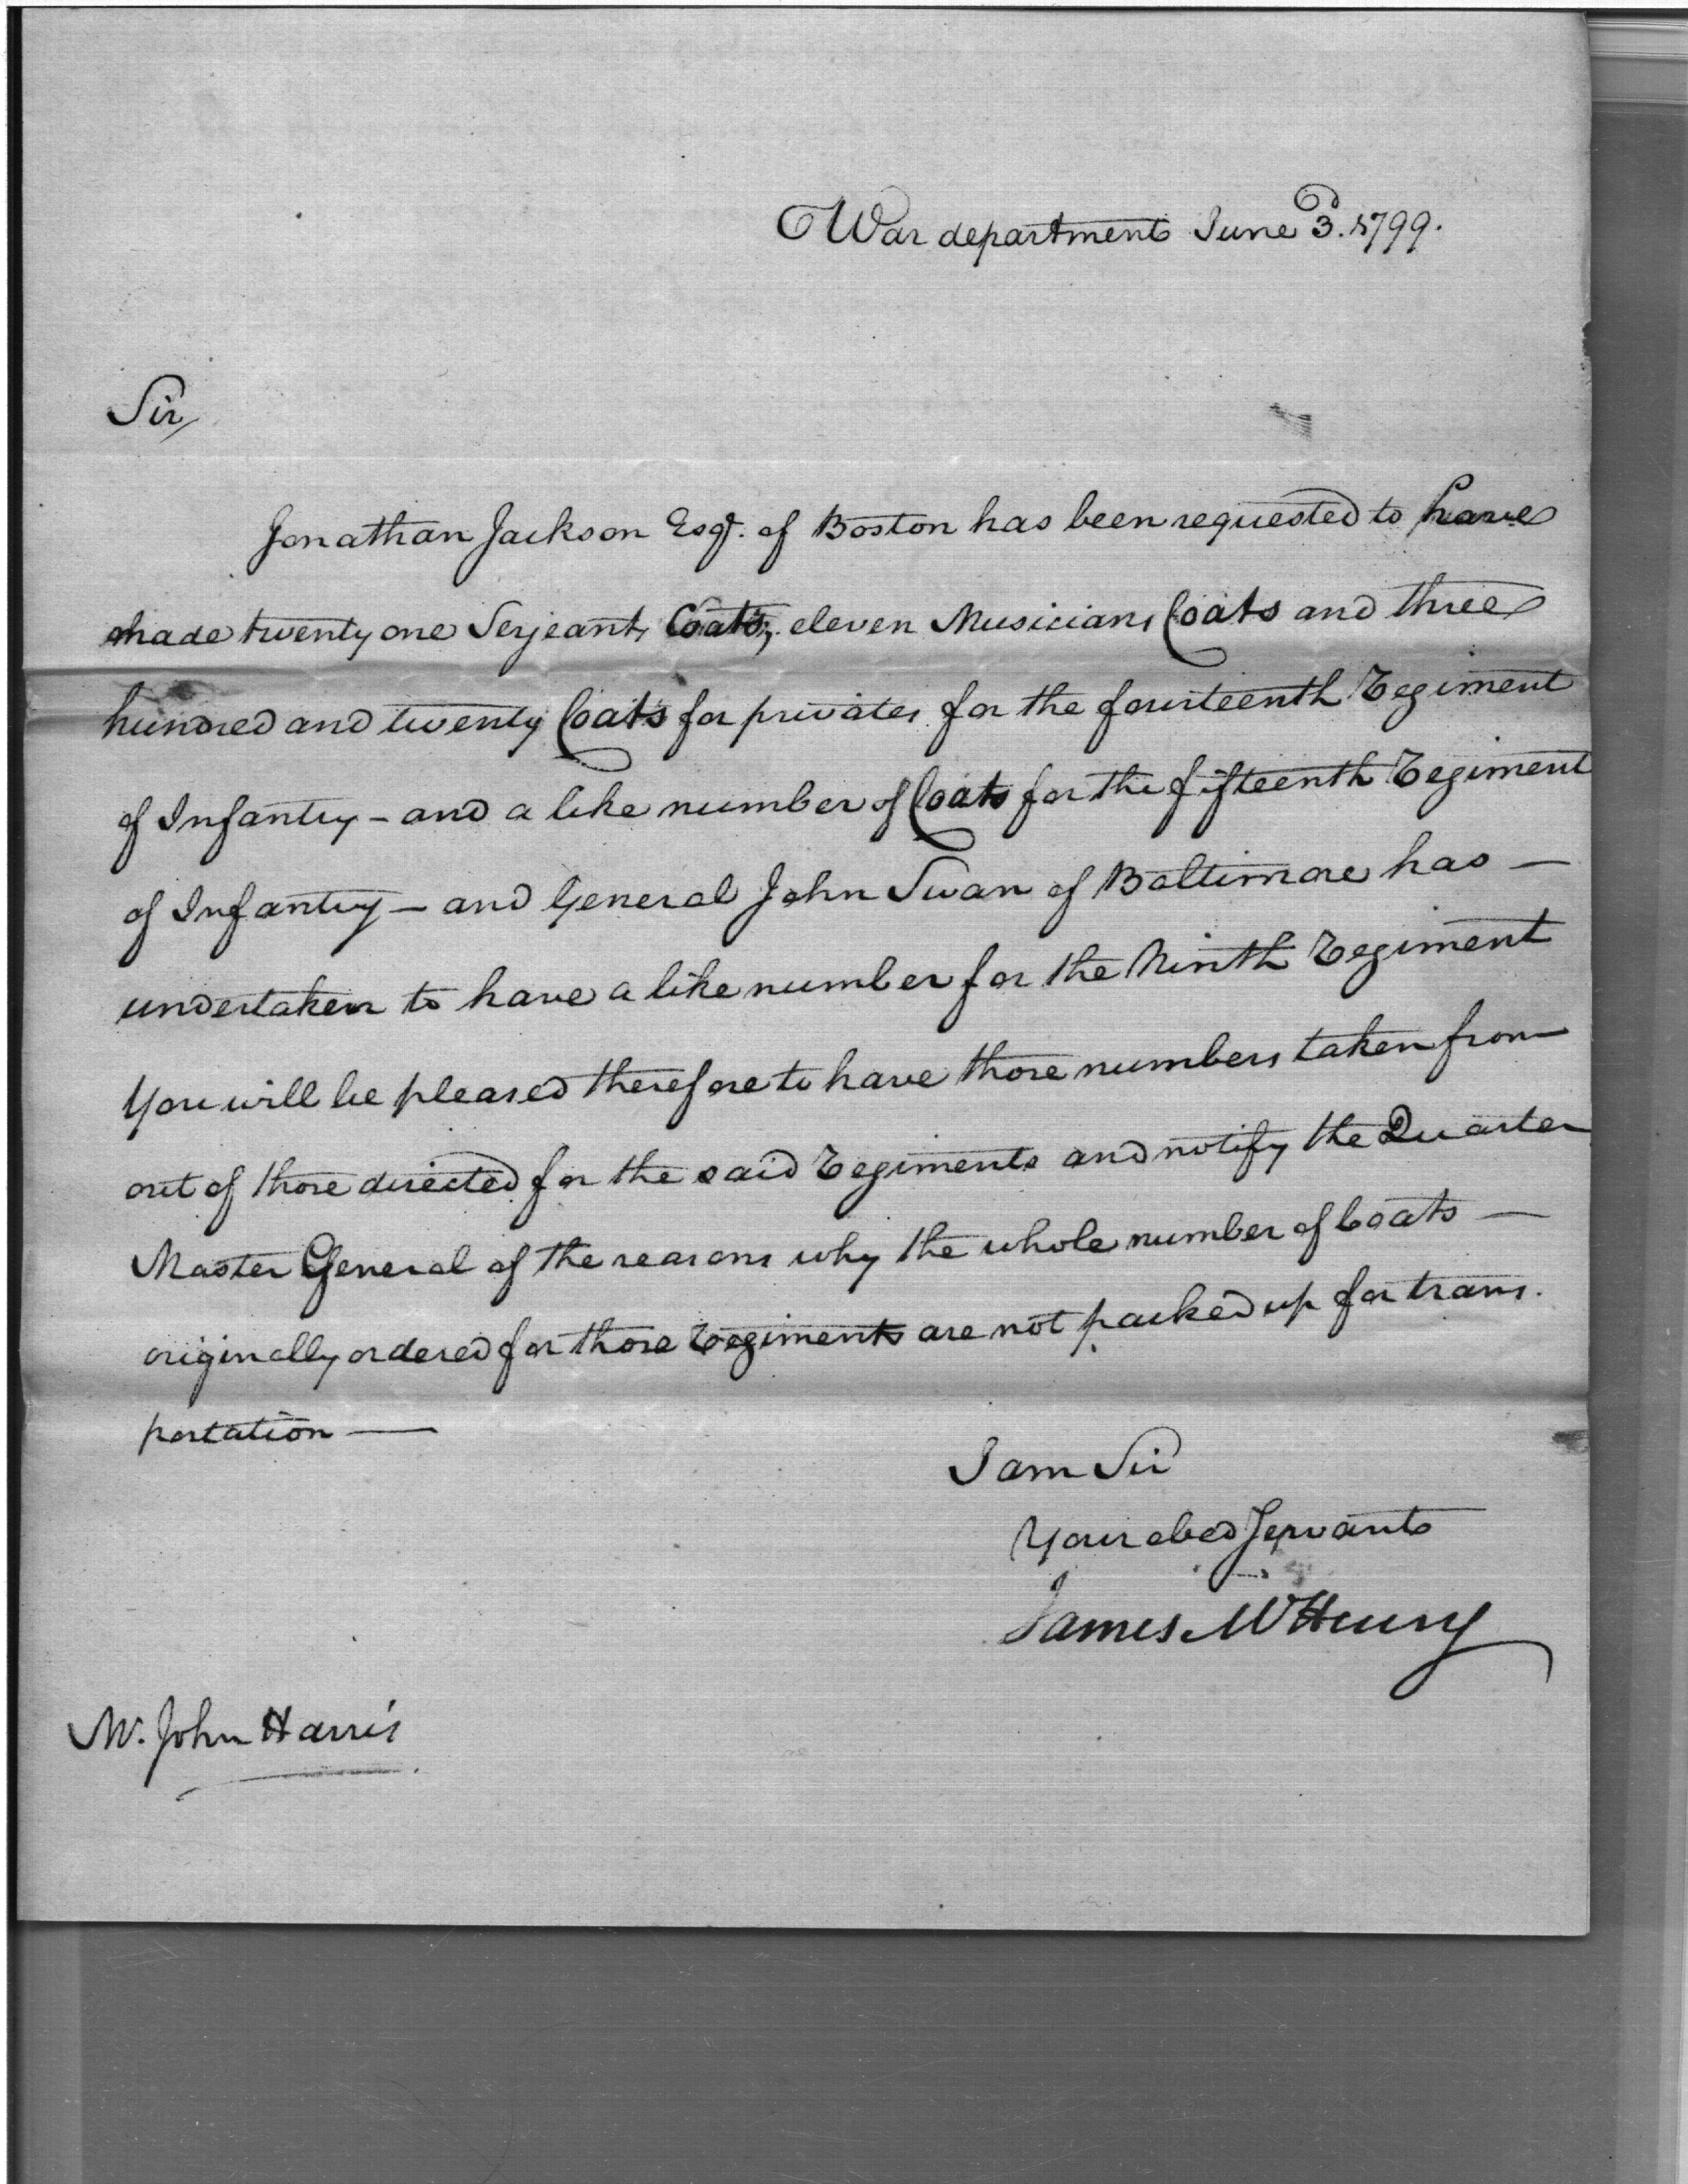 War department June 3d. 1799.
Sir,
Jonathan Jackson Esqr. of Boston has been requested to have
made twenty one Serjeants Coats, eleven Musicians Coats and three
hundred and twenty Coats for privates for the fourteenth Regiment
of Infantry - and a like number of Coats for the fifteenth Regiment
of Infantry — and General John Swan of Baltimore has —
undertaken to have a like number for the Ninth Regiment
You will be pleased therefore to have those numbers taken from
out of those directed for the said Regiments and notify the Quarter
Master General of the reasons why the whole number of Coats —
originally ordered for those Regiments are not packed up for trans-
portation —
I am Sir
Your obed Servant
James McHenry
Mr. John Harris